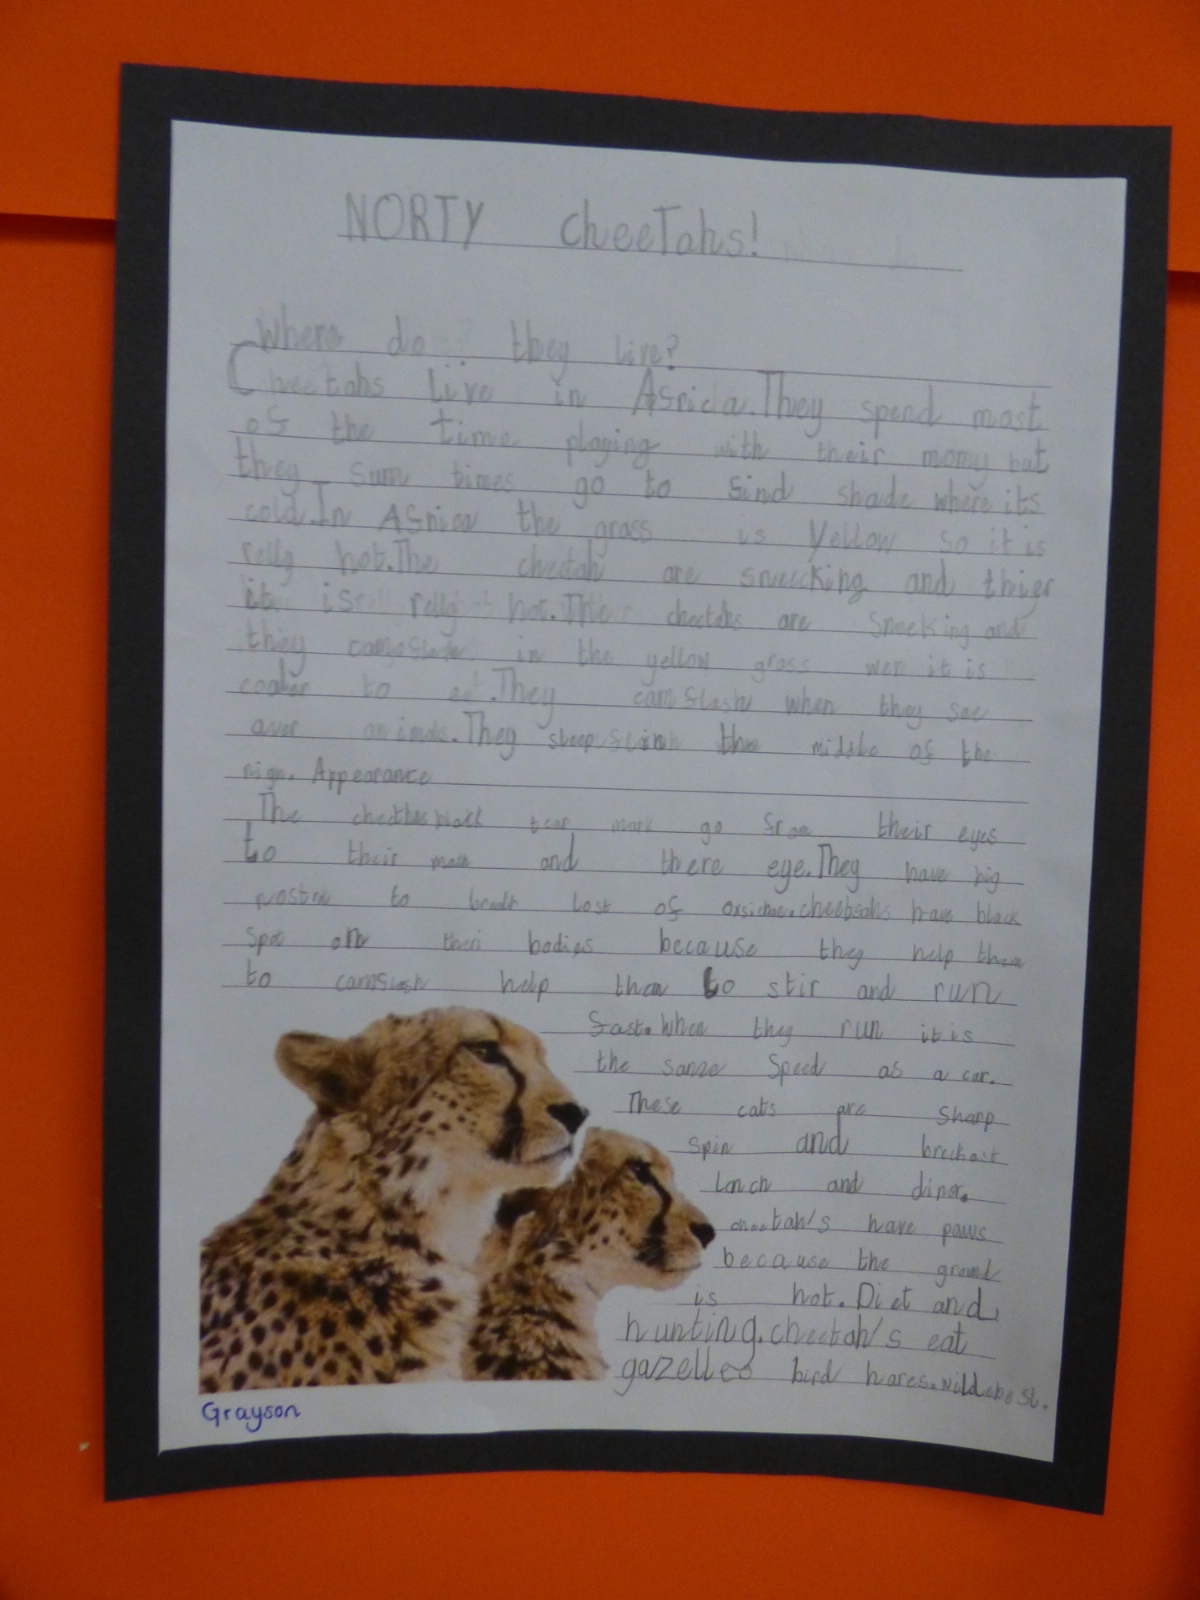 NORTY cheeTahs!
Where do they live?
Cheetahs live in Asrica.They spend most
of the time playing with their momy but
they sum times go to find shade where its
cold.In Asrica the grass is Yellow so it is
relly hot.The cheetah are sneecking and thier
it is relly hot.The cheetahs are sneeking and
they in the yellow grass wen it is
cooler to eat.They camflash when they see
aver animals.They sleep in the middle of the
nigh. Appearance
The black tear mark go from their eyes
to their and there eye.They have big
nostre to of have black
spos on theri bodies because they help them
to camflash help them to stir and run
fast.When they run it is
the same Speed as a car.
These cats are sharp
spin and breckast
lonch and diner.
cheetah's have paws
because the grond
is hot.Diet and
hunting.cheetah's eat
gazelles bird hares.wildebest.
Grayson